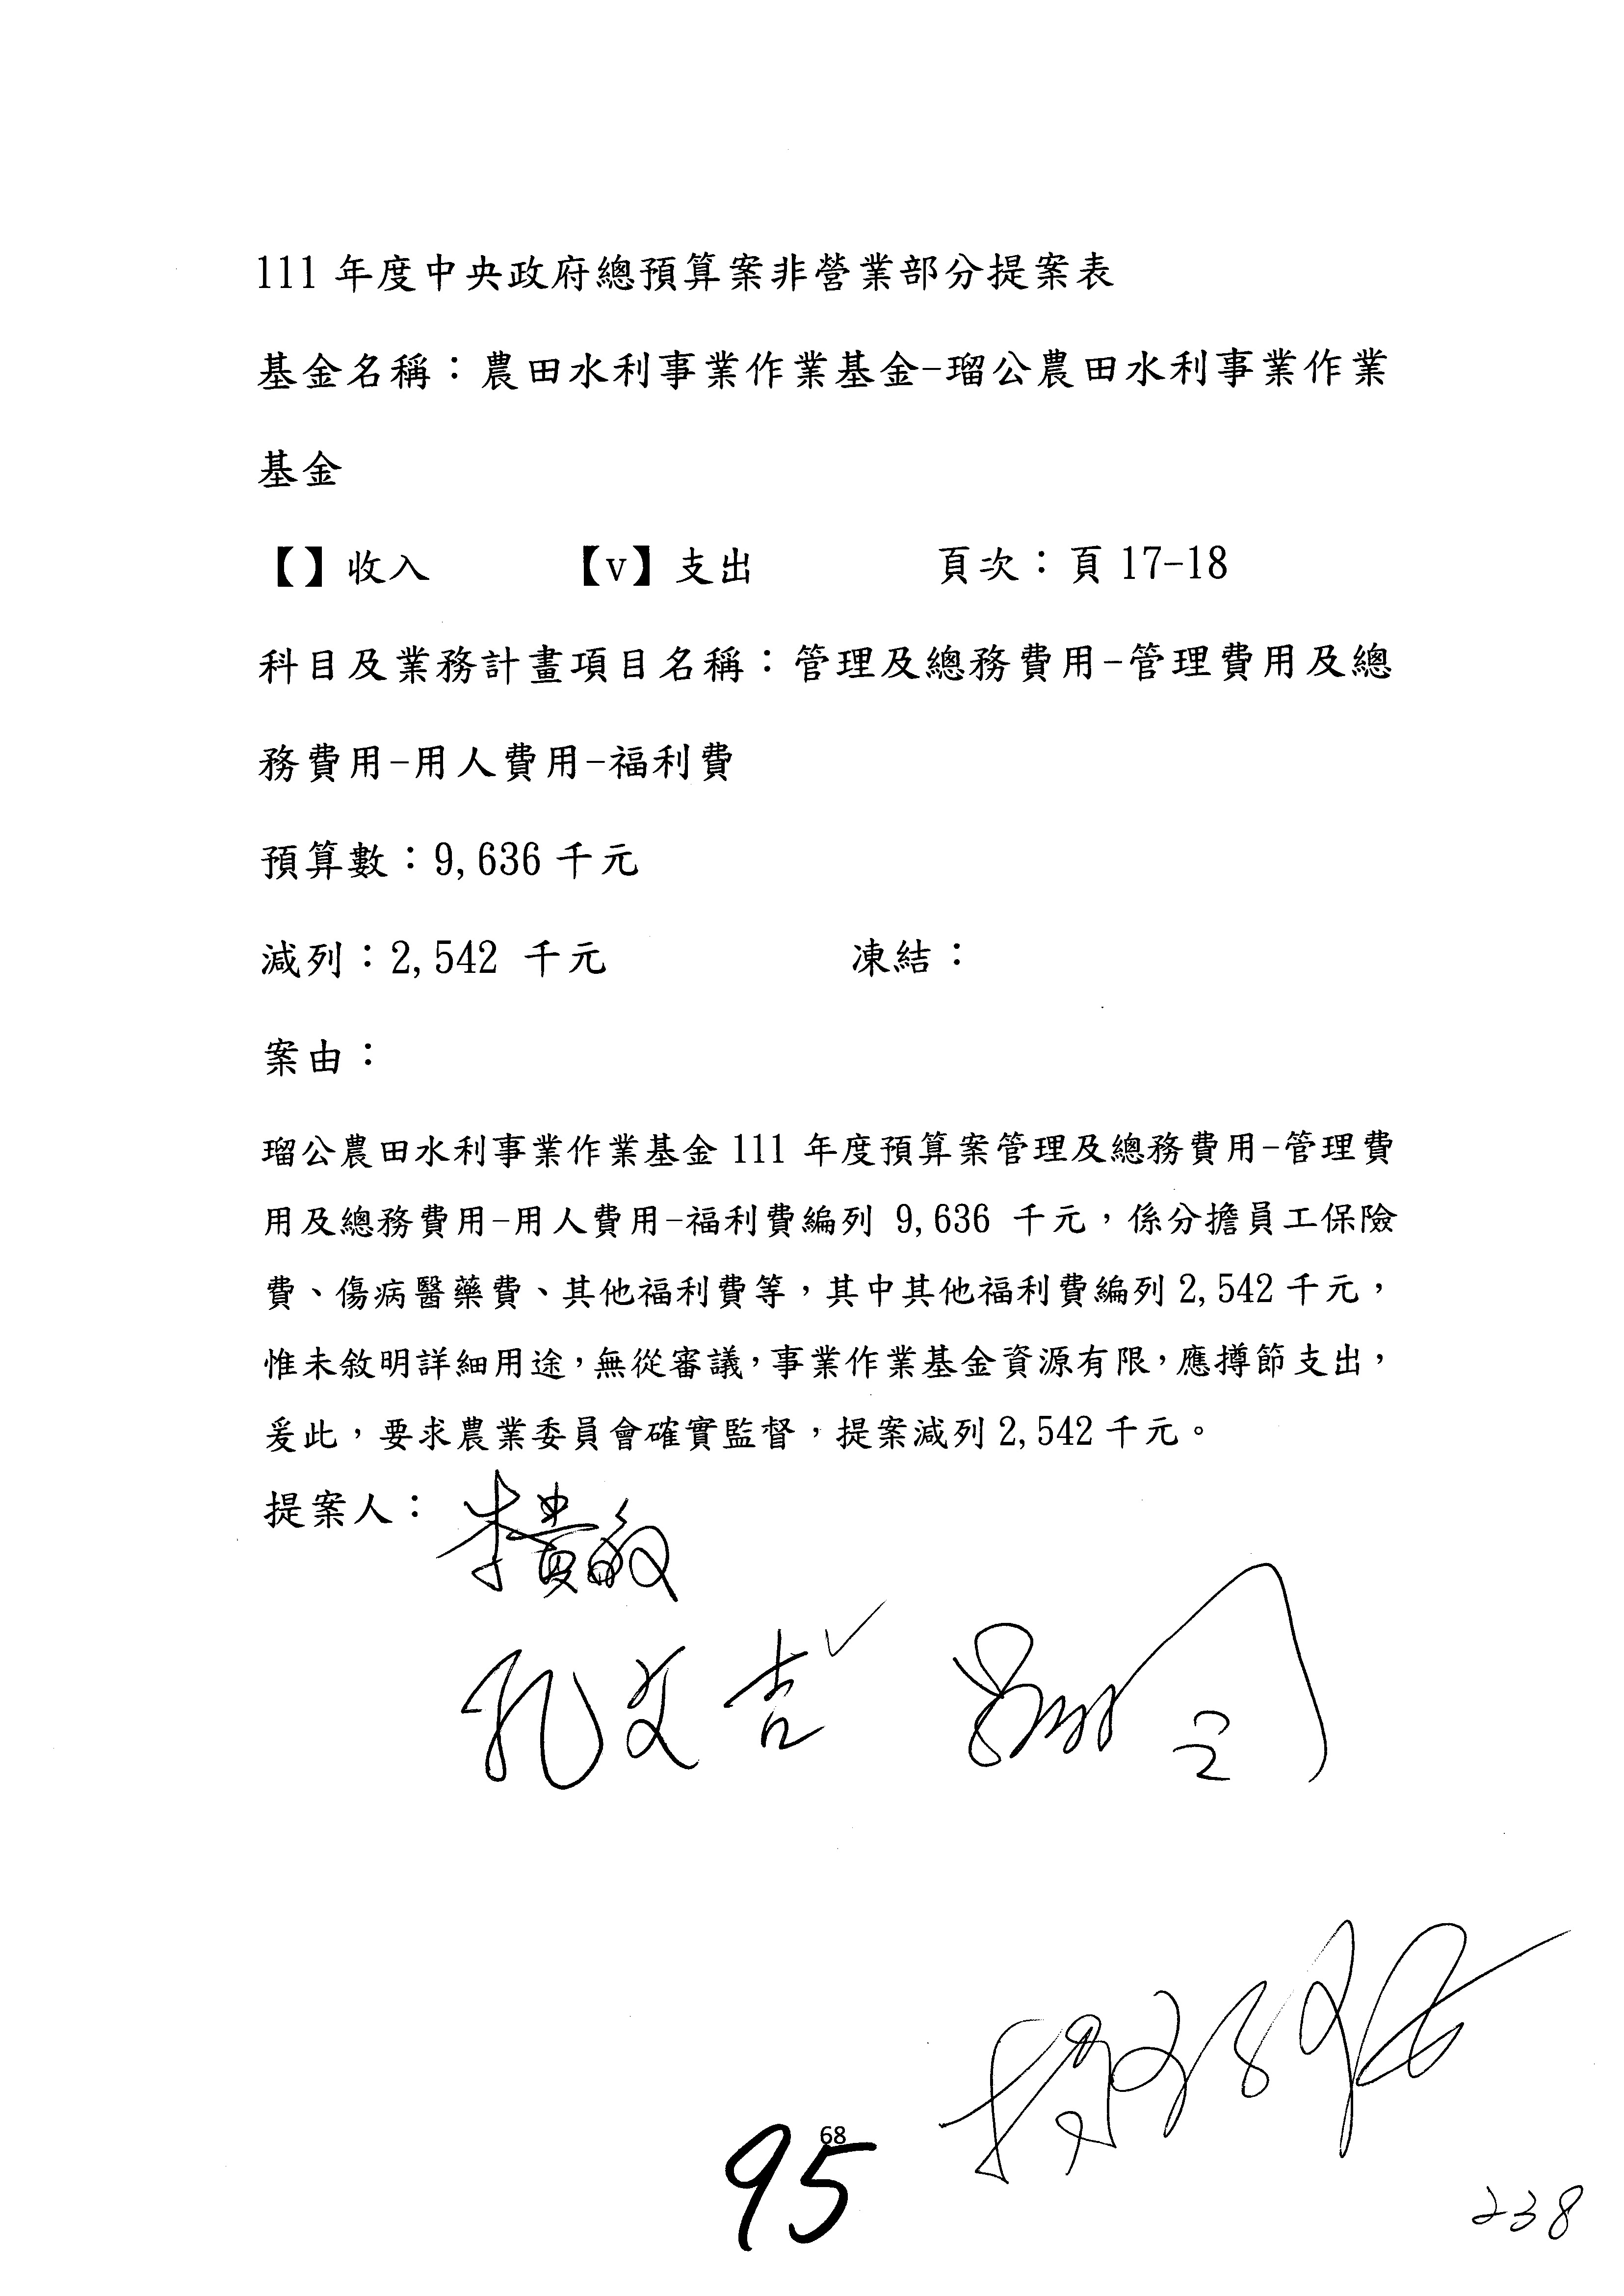 111 年度中央政府總預算案非營業部分提案表
基金名稱：農田水利事業作業基金-瑠公農田水利事業作業
基金
【】收入 【v】支出 頁次：頁 17-18
科目及業務計畫項目名稱：管理及總務費用-管理費用及總
務費用-用人費用-福利費
預算數：9,636 千元
減列：2,542 千元 凍結：
案由：
瑠公農田水利事業作業基金 111 年度預算案管理及總務費用-管理費
用及總務費用-用人費用-福利費編列 9,636 千元，係分擔員工保險
費、傷病醫藥費、其他福利費等，其中其他福利費編列 2,542 千元，
惟未敘明詳細用途，無從審議，事業作業基金資源有限，應撙節支出，
爰此，要求農業委員會確實監督，提案減列 2,542 千元。
提案人：李貴敏
孔文吉
68
95
238